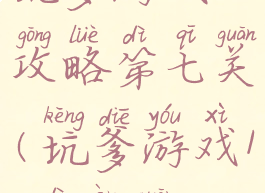 gōng lüè dì qī guān
攻略第七关
kēng diē yóu xì
(坑爹游戏